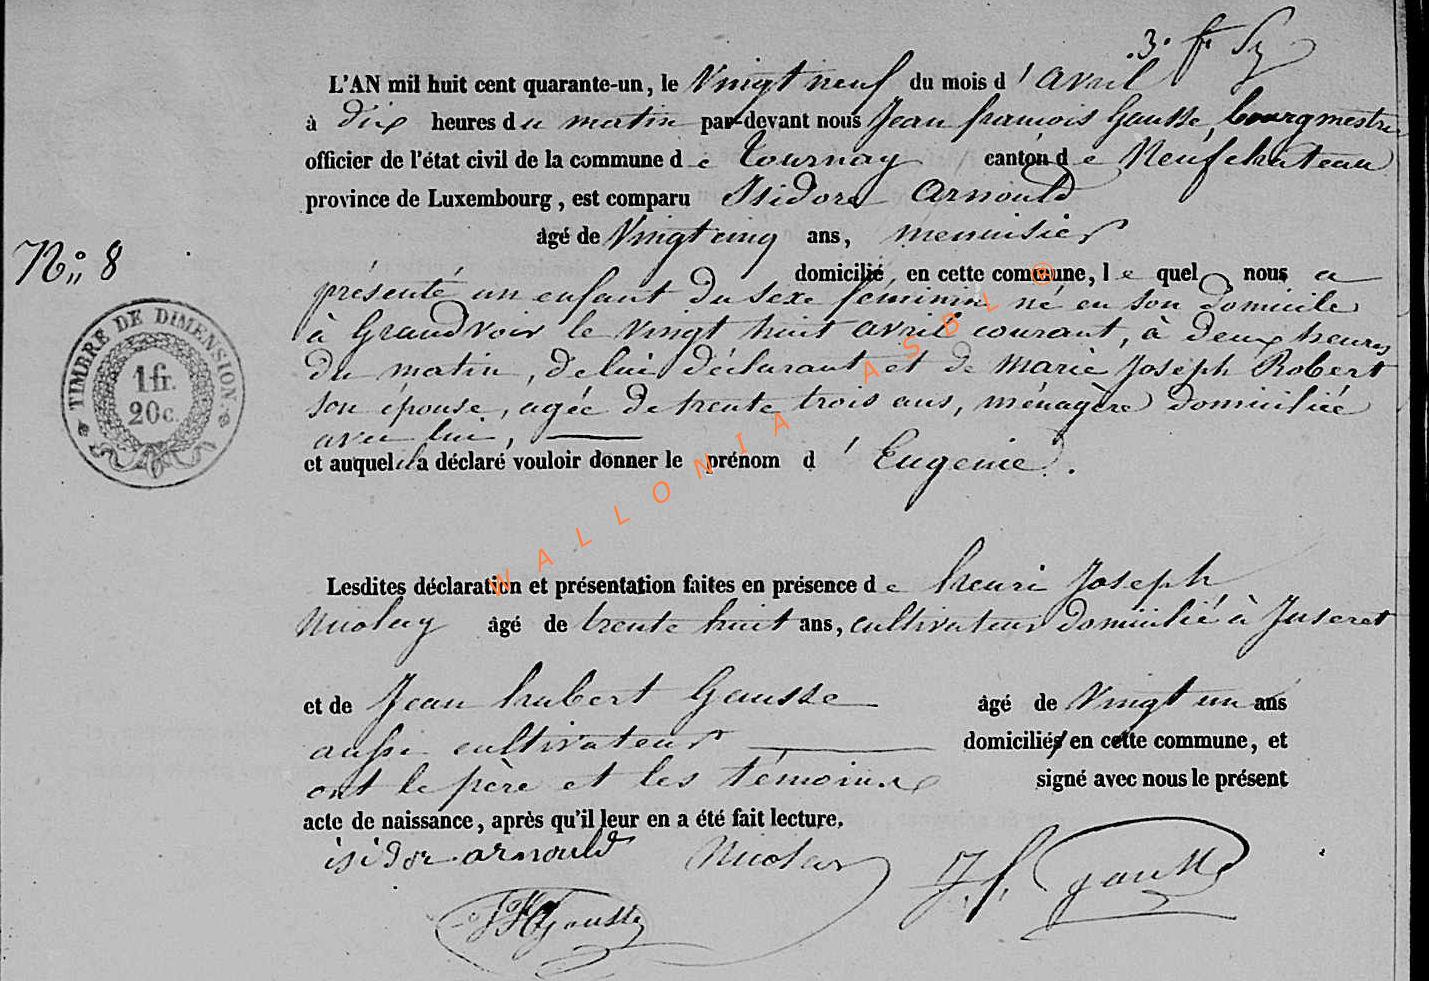 .3. f
L'AN mil huit cent quarante-un, le Vingt neuf du mois d'avril
à dix heures du matin par-devant nous Jean françois Gausse, bourgmestre
officier de l'état civil de la commune de Tournay canton de Neufchateau
province de Luxembourg, est comparu Isidore Arnould
âgé de Vingt cinq ans, menuisier
N° 8
domicilié en cette commune, lequel nous a
présenté un enfant du sexe féminin né en son domicile
à Grandvoir le vingt huit avril courant, à deux heures
du matin, de lui déclarant et de Marie Joseph Robert
son épouse, agée de trente trois ans, ménagère domiciliée
avec lui,
et auquel il a déclaré vouloir donner le prénom d'Eugenie.
TIMBRE DE DIMENSION
1 fr.
20 c.
Lesdites déclaration et présentation faites en présence de henri Joseph
Nicolay âgé de trente huit ans, cultivateur domicilié à Juseret
et de Jean hubert Gausse âgé de Vingt un ans
aussi cultivateur domiciliés en cette commune, et
ont le père et les témoins signé avec nous le présent
acte de naissance, après qu'il leur en a été fait lecture.
isidor arnould Nicolay J.f. Gausse
JHGausse
WALLONIA ASBL ®